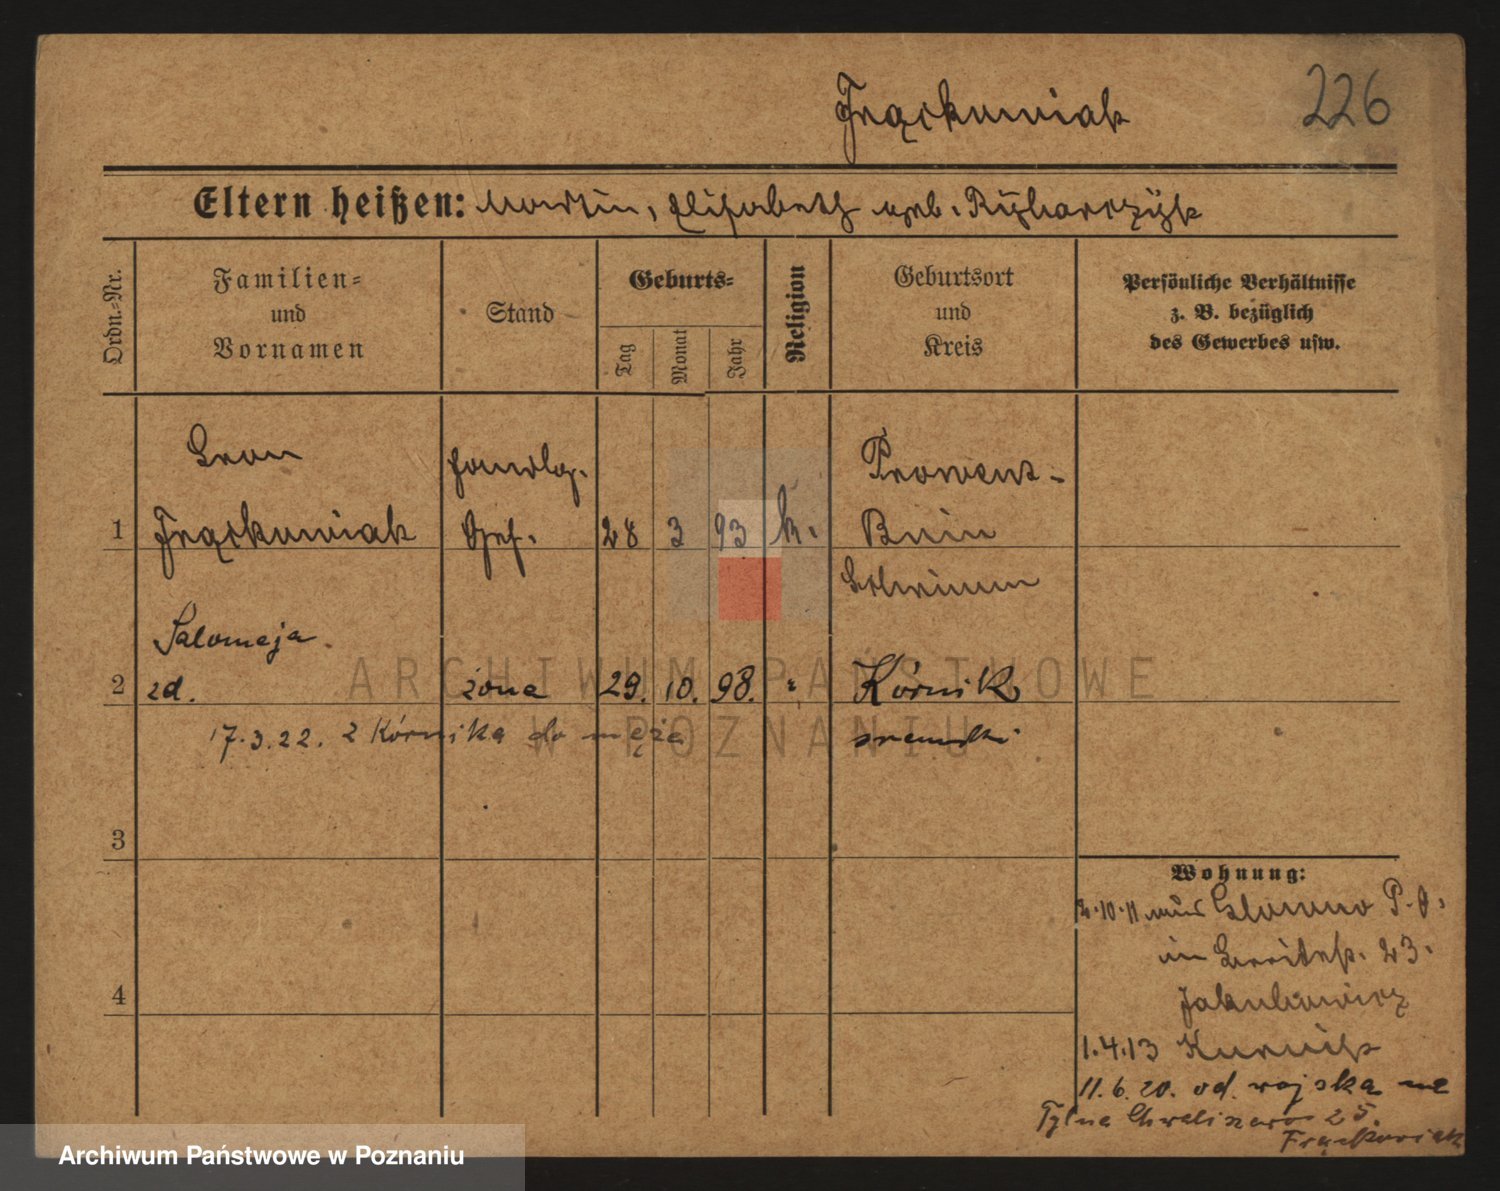 Frąckowiak
226
Eltern heißen: Martin, Elisabeth geb. Rÿbarczÿk
Ordn.-Nr.
Familien-
und
Vornamen
Stand
Geburts-
Tag
Monat
Jahr
Religion
Geburtsort
und
Kreis
Persönliche Verhältnisse
z. B. bezüglich
des Gewerbes usw.
Leon
Frąckowiak
1
Handlgs.
Geh.
28 3 93 k.
Prowent-
Bnin
Schrimm
Salomeja
2 zd. żona 29. 10. 98. " Kórnik
17.3.22. z Kórnika do męża
sremski
ARCHIWUM PAŃSTWOWE
W POZNANIU
3
4
Wohnung:
2.10.11 aus Glowno P.O.
in Breitestr. 23.
Jakubowicz
1.4.13 Kurnik
11.6.20. od wojska na
Tylne Chwaliszewo 25.
Frąckowiak
Archiwum Państwowe w Poznaniu